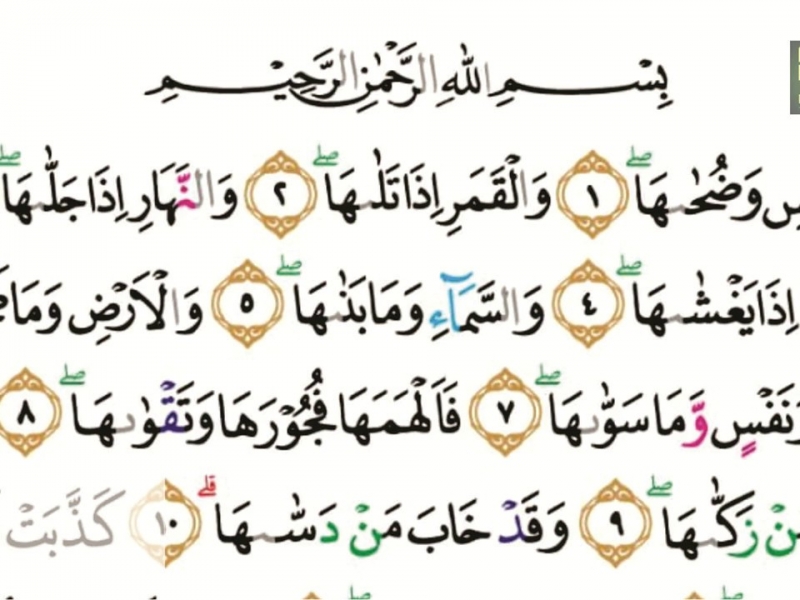 بِسْمِ اللهِ الرَّحْمٰنِ الرَّحِيْمِ
وَضُحٰىهَا ۖ ١ وَالْقَمَرِ اِذَا تَلٰىهَا ۖ ٢ وَالنَّهَارِ اِذَا جَلّٰىهَا ۖ
اِذَا يَغْشٰىهَا ۖ ٤ وَالسَّمَاۤءِ وَمَا بَنٰىهَا ۖ ٥ وَالْاَرْضِ وَمَا
وَنَفْسٍ وَّمَا سَوّٰىهَا ۖ ٧ فَاَلْهَمَهَا فُجُوْرَهَا وَتَقْوٰىهَا ۖ ٨
زَكّٰىهَا ۖ ٩ وَقَدْ خَابَ مَنْ دَسّٰىهَا ۗ ١٠ كَذَّبَتْ